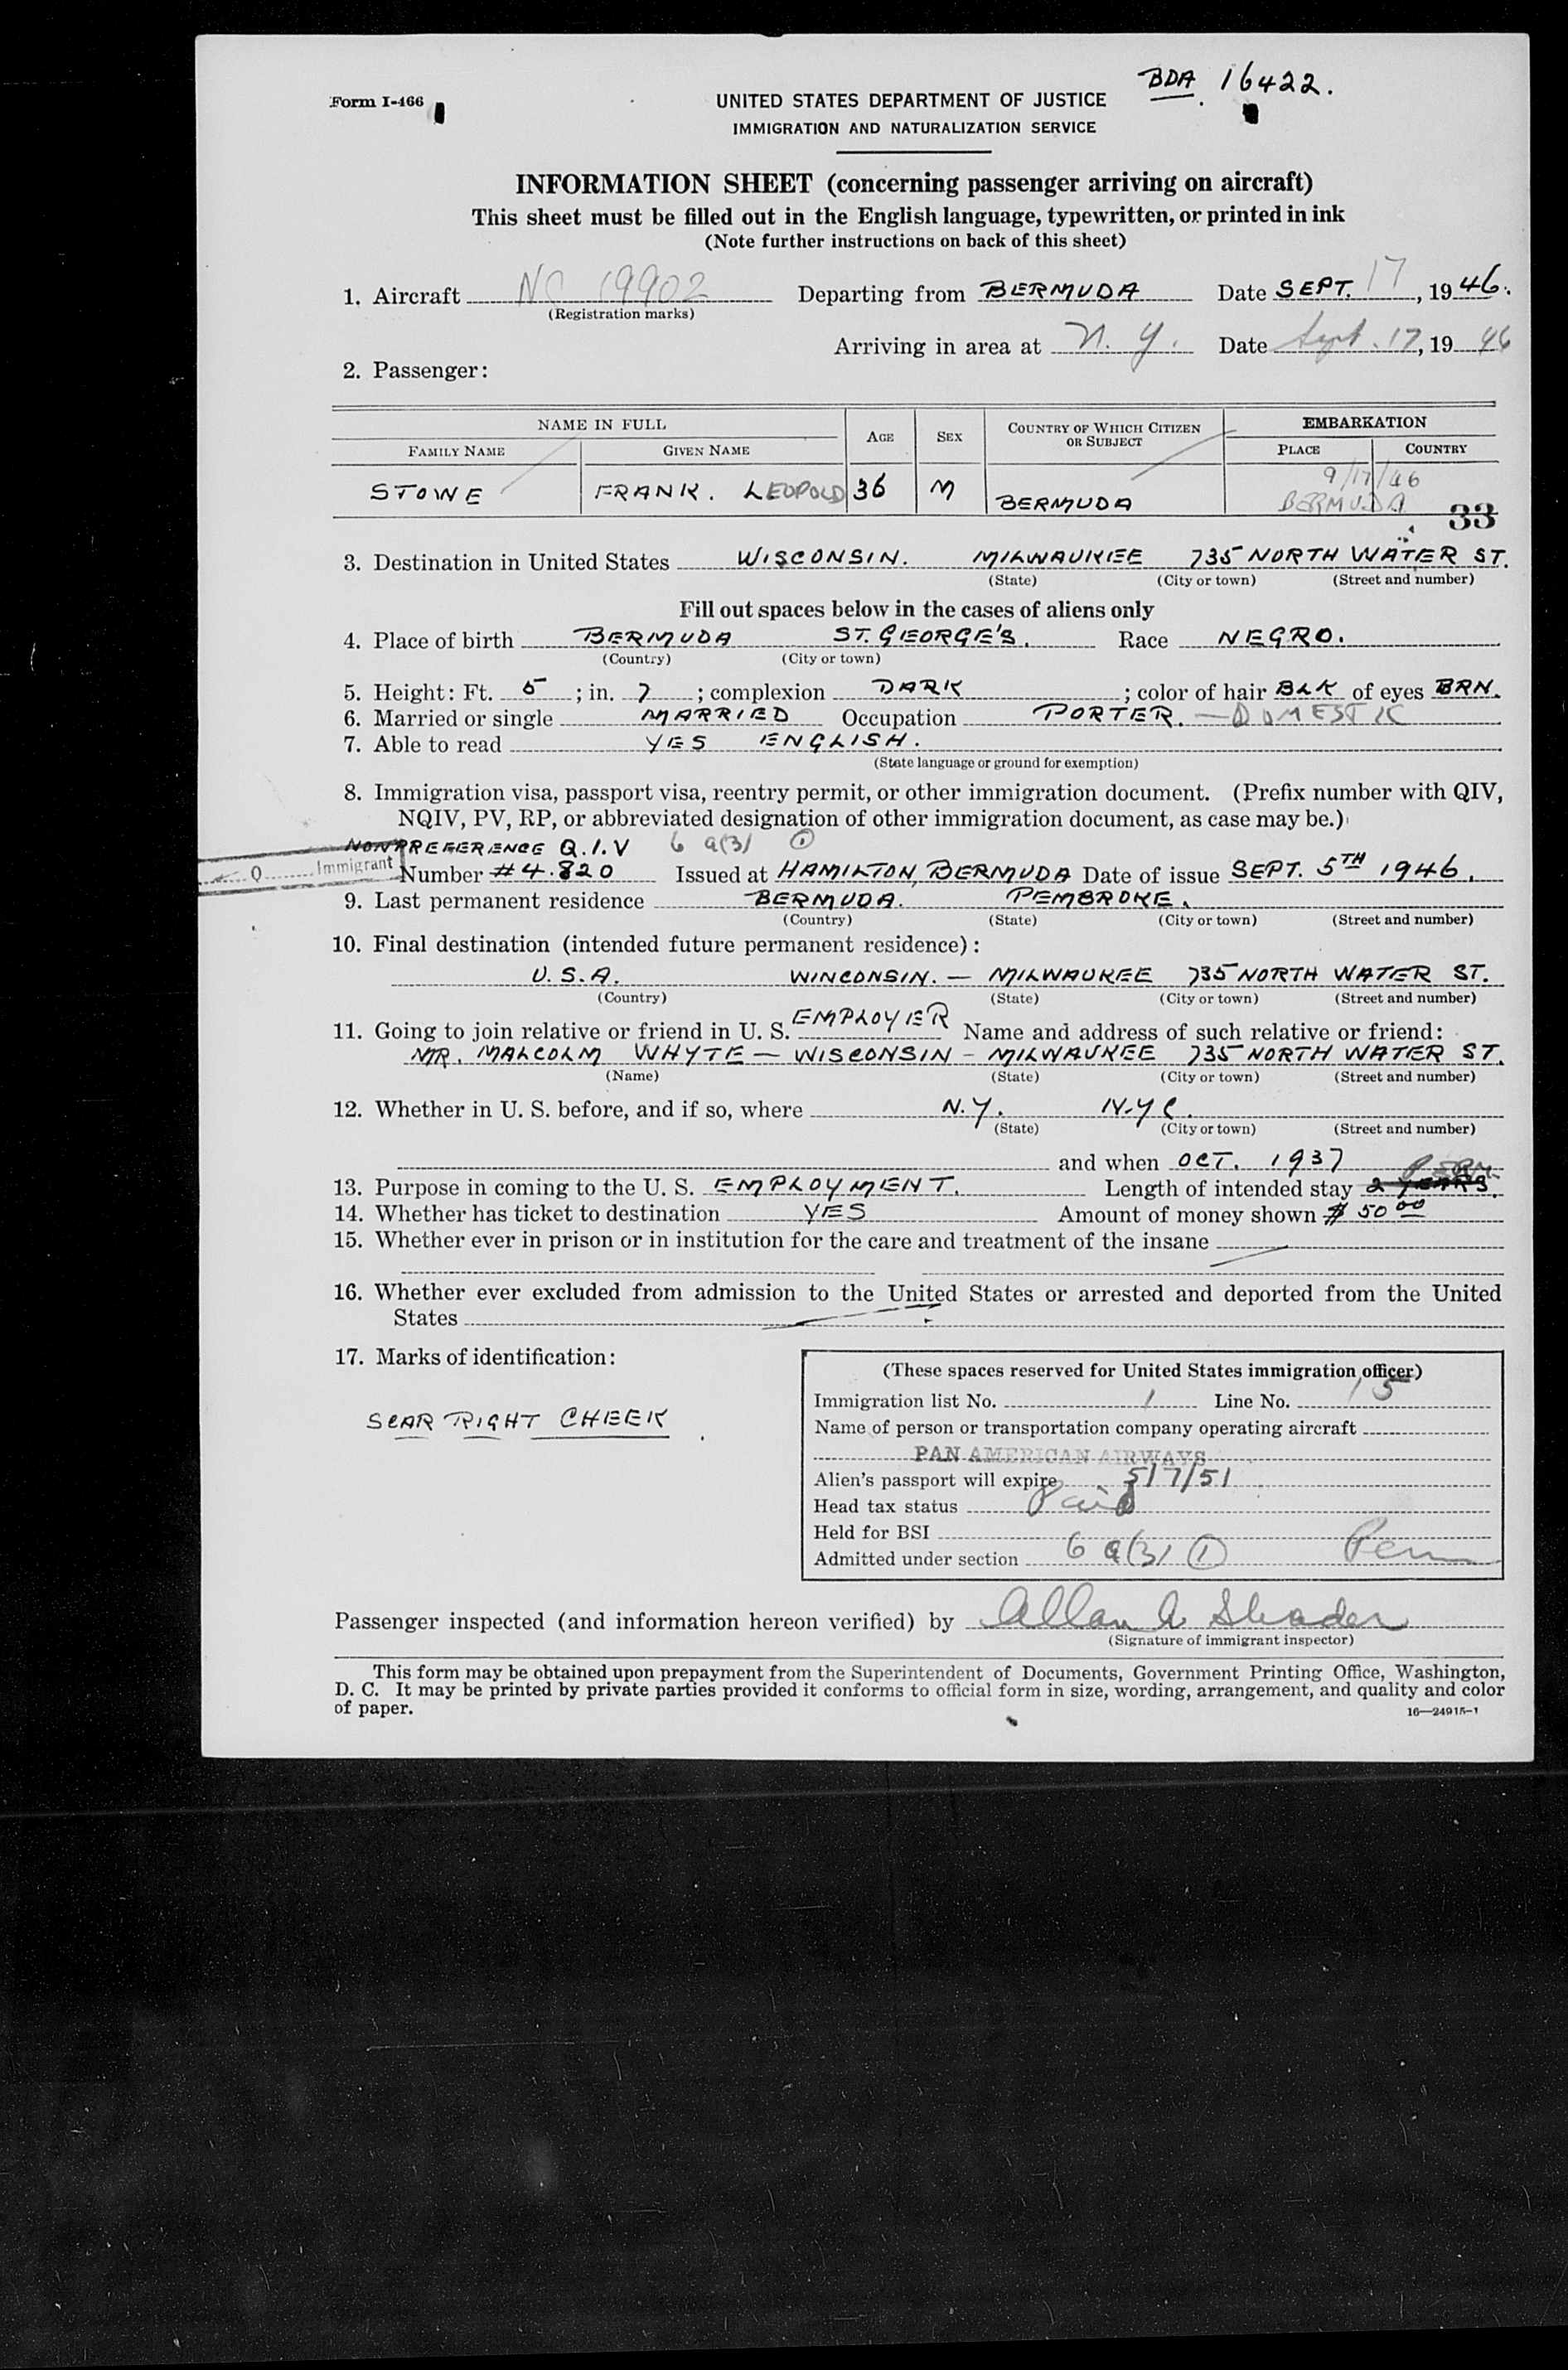 BDA 16422.
Form I-466
UNITED STATES DEPARTMENT OF JUSTICE
IMMIGRATION AND NATURALIZATION SERVICE
INFORMATION SHEET (concerning passenger arriving on aircraft)
This sheet must be filled out in the English language, typewritten, or printed in ink
(Note further instructions on back of this sheet)
1. Aircraft NC 19902 Departing from BERMUDA Date SEPT. 17, 1946.
(Registration marks)
Arriving in area at N. Y. Date Sept. 17, 19 46
2. Passenger:
NAME IN FULL AGE SEX COUNTRY OF WHICH CITIZEN OR SUBJECT EMBARKATION
FAMILY NAME GIVEN NAME PLACE COUNTRY
9/17/46
STOWE FRANK. LEOPOLD 36 M BERMUDA BERMUDA
33
3. Destination in United States WISCONSIN. MILWAUKEE 735 NORTH WATER ST.
(State) (City or town) (Street and number)
Fill out spaces below in the cases of aliens only
4. Place of birth BERMUDA ST. GEORGE'S. Race NEGRO.
(Country) (City or town)
5. Height: Ft. 5; in. 7; complexion DARK; color of hair BLK of eyes BRN.
6. Married or single MARRIED Occupation PORTER. — DOMESTIC
7. Able to read YES ENGLISH.
(State language or ground for exemption)
8. Immigration visa, passport visa, reentry permit, or other immigration document. (Prefix number with QIV,
NQIV, PV, RP, or abbreviated designation of other immigration document, as case may be.)
NONPREFERENCE Q.I.V 6 a(3) ①
Q Immigrant
Number #4.820 Issued at HAMILTON, BERMUDA Date of issue SEPT. 5TH 1946.
9. Last permanent residence BERMUDA. PEMBROKE.
(Country) (State) (City or town) (Street and number)
10. Final destination (intended future permanent residence):
U.S.A. WINCONSIN. — MILWAUKEE 735 NORTH WATER ST.
(Country) (State) (City or town) (Street and number)
11. Going to join relative or friend in U. S. EMPLOYER Name and address of such relative or friend:
MR. MALCOLM WHYTE — WISCONSIN – MILWAUKEE 735 NORTH WATER ST.
(Name) (State) (City or town) (Street and number)
12. Whether in U. S. before, and if so, where N.Y. N.Y C.
(State) (City or town) (Street and number)
and when OCT. 1937
13. Purpose in coming to the U. S. EMPLOYMENT. Length of intended stay 2 YEARS. Perm
14. Whether has ticket to destination YES Amount of money shown $ 50 00
15. Whether ever in prison or in institution for the care and treatment of the insane
16. Whether ever excluded from admission to the United States or arrested and deported from the United
States
17. Marks of identification:
SCAR RIGHT CHEEK.
(These spaces reserved for United States immigration officer)
Immigration list No. 1 Line No. 15
Name of person or transportation company operating aircraft
PAN AMERICAN AIRWAYS
Alien's passport will expire 5/7/51
Head tax status Paid
Held for BSI
Admitted under section 6 a(3) ① Perm
Passenger inspected (and information hereon verified) by
(Signature of immigrant inspector)
This form may be obtained upon prepayment from the Superintendent of Documents, Government Printing Office, Washington,
D. C. It may be printed by private parties provided it conforms to official form in size, wording, arrangement, and quality and color
of paper.
16—24915-1